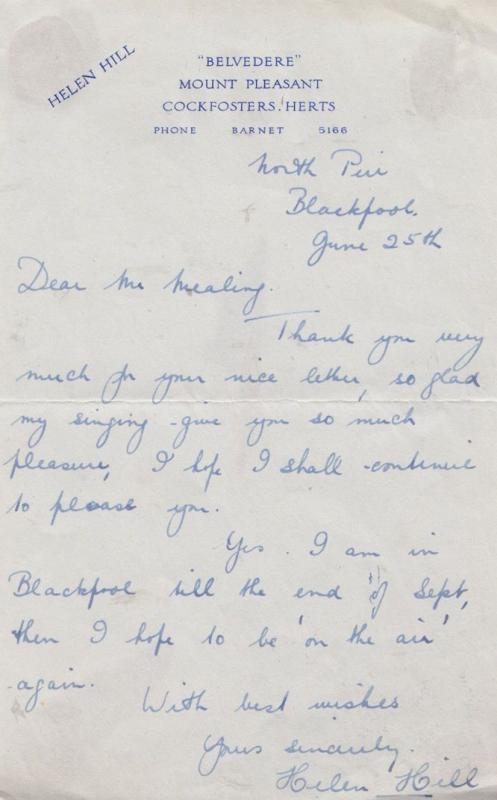 HELEN HILL
"BELVEDERE"
MOUNT PLEASANT
COCKFOSTERS. HERTS
PHONE BARNET 5166
North Pier
Blackpool.
June 25th
Dear Mr Mealing.
Thank you very
much for your nice letter, so glad
my singing give you so much
pleasure, I hope I shall continue
to please you.
Yes. I am in
Blackpool till the end of Sept,
then I hope to be 'on the air'
again.
With best wishes
Yours sincerely.
Helen Hill